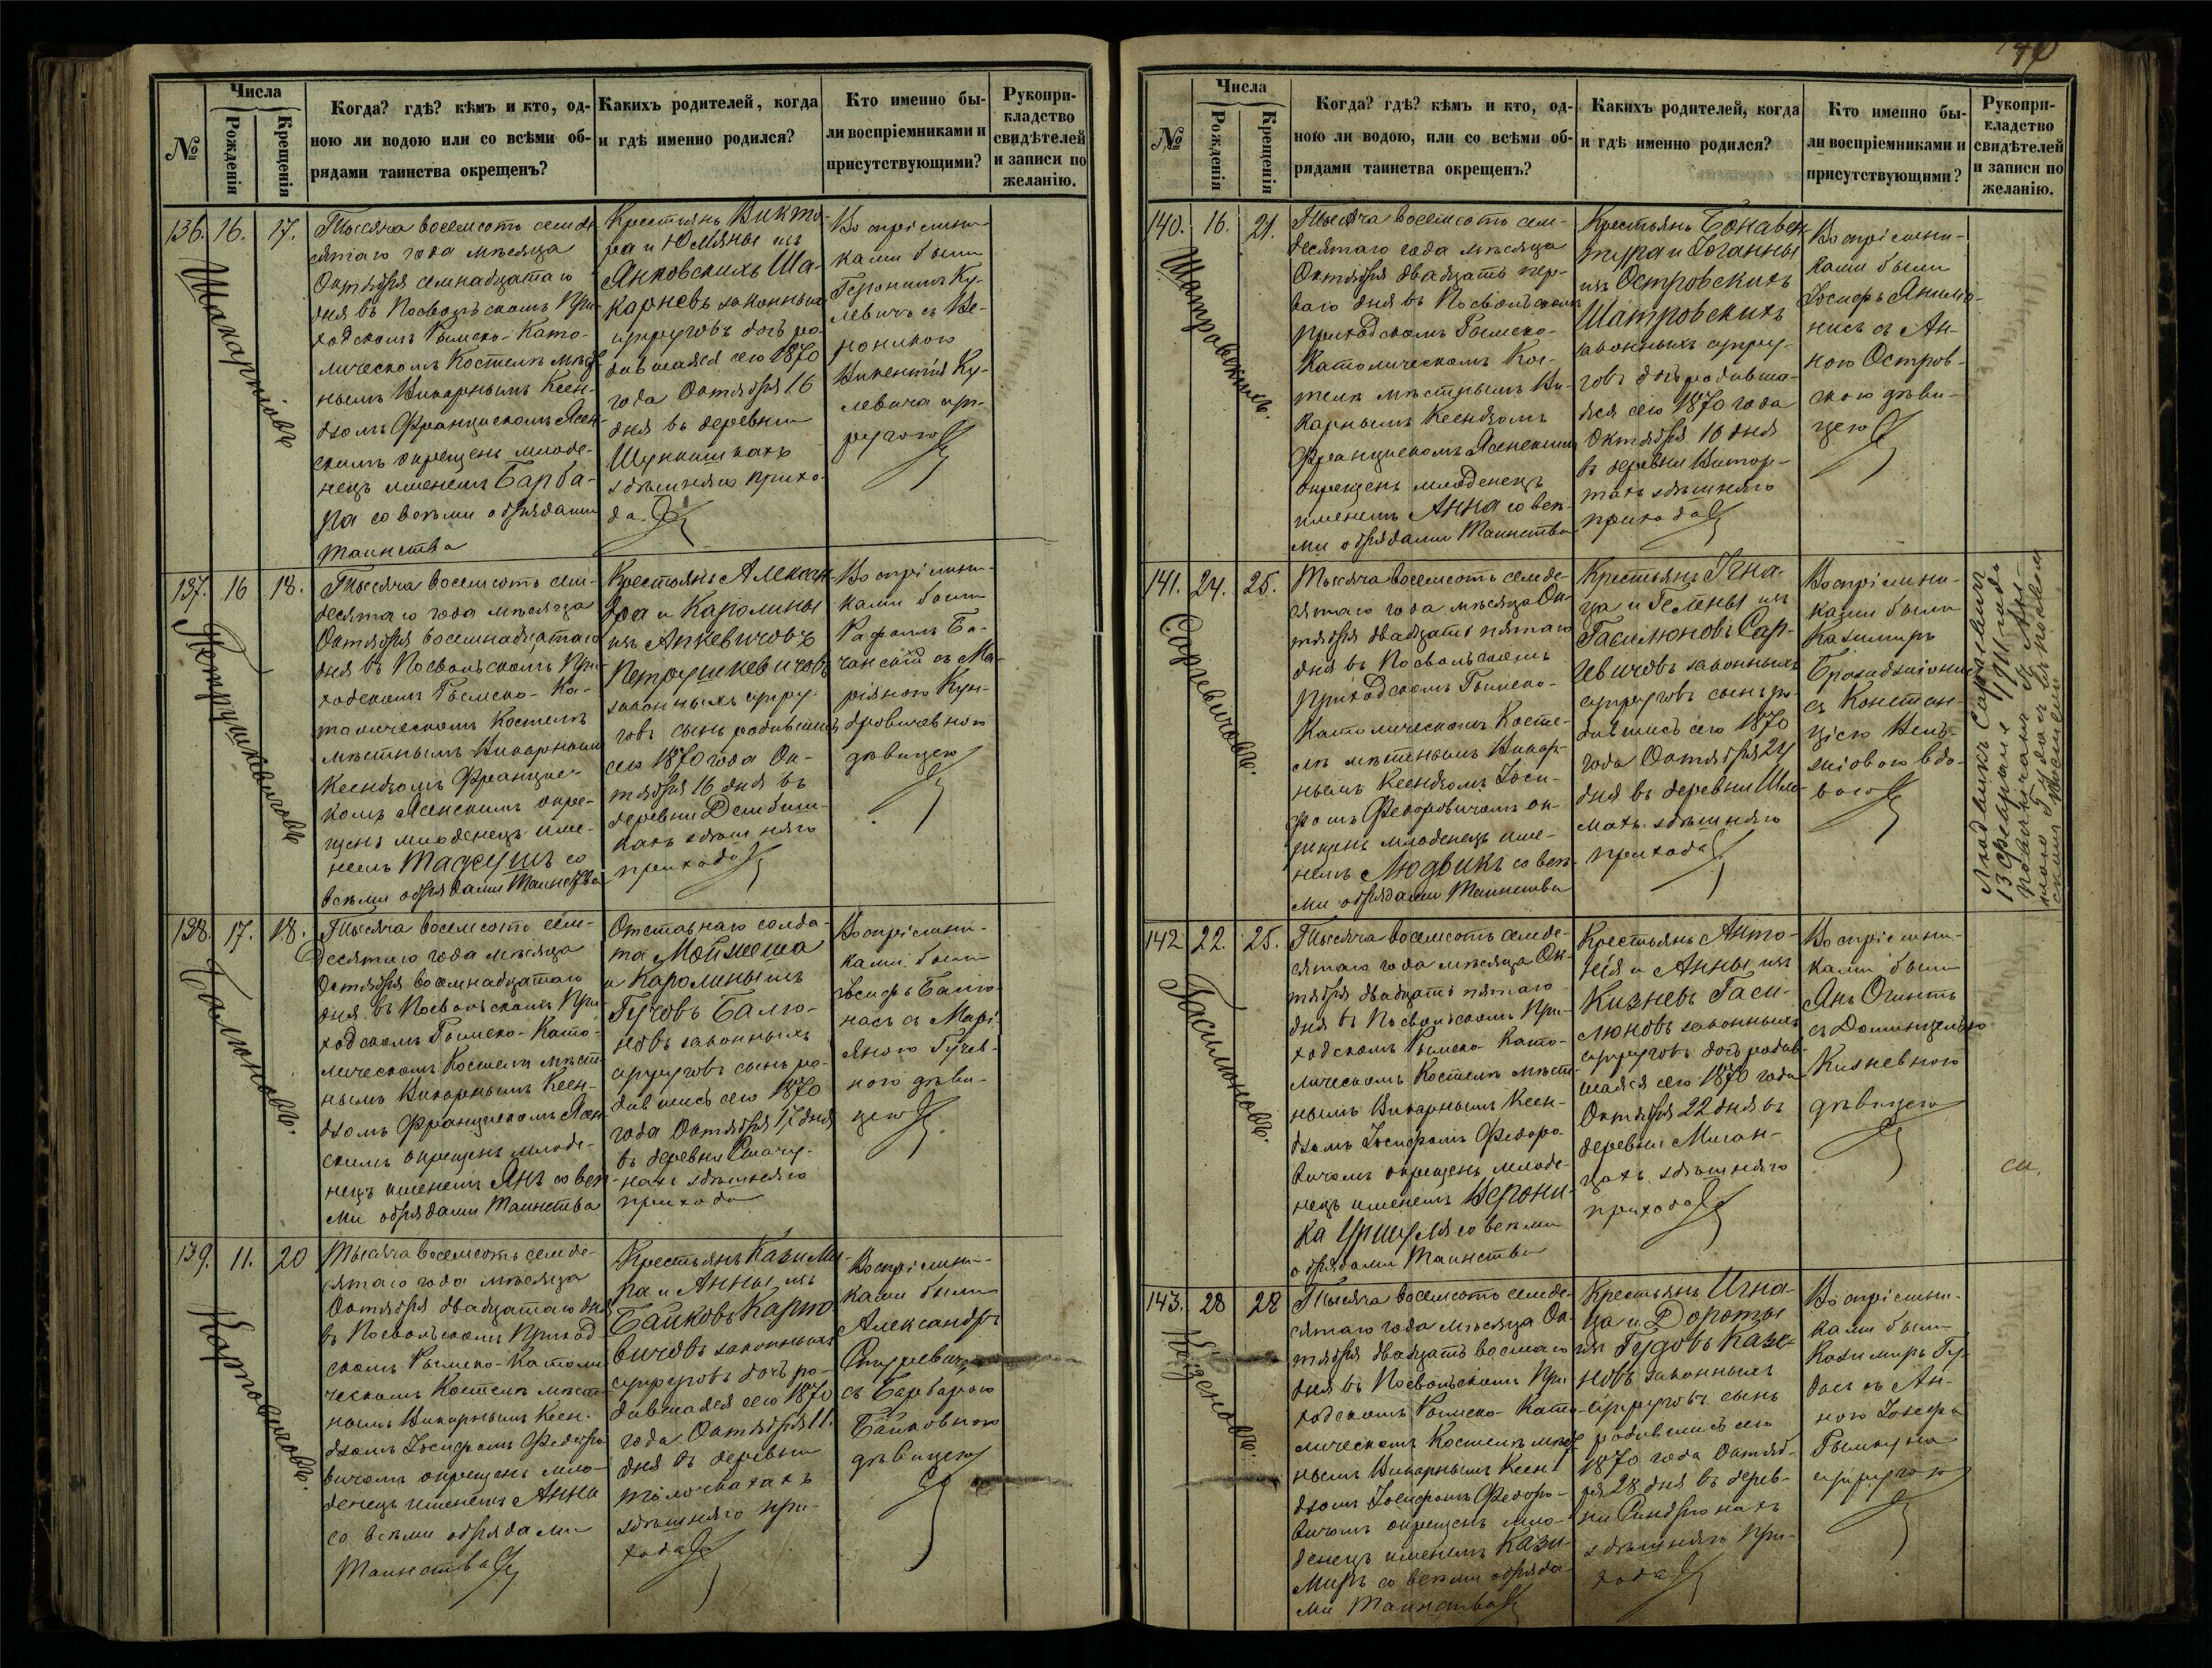 №
Числа
Рожденія
Крещенія
Когда? гдѣ? кѣмъ и кто, од-
ною ли водою или со всѣми об-
рядами таинства окрещенъ?
Какихъ родителей, когда
и гдѣ именно родился?
Кто именно бы-
ли воспріемниками и
присутствующими?
Рукопри-
кладство
свидѣтелей
и записи по
желанію.
136. 16. 17.
Тысяча восемсотъ семде
сятаго года мѣсяца
Октября семнадцатаго
дня въ Посвольскомъ При-
ходскомъ Римско-Като-
лическомъ Костелѣ мѣст
нымъ Викарнымъ Ксен-
дзомъ Францискомъ Ясен
скимъ окрещенъ младе-
нецъ именемъ Барба-
ра со всѣми обрядами
Таинства
Крестьянъ Викто-
ра и Юліяны изъ
Янковскихъ Ша-
карневъ законныхъ
супруговъ дочь ро-
дившаяся сего 1870
года Октября 16
дня въ деревни
здѣшняго прихо-
да.
Воспріемни-
ками были
Геронимъ Ку-
левичъ съ Ве-
роникою
Викентія Ку-
левича суп-
ругою
137. 16 18.
Петрушкевичовъ
Тысяча восемсотъ сем-
десятаго года мѣсяца
Октября восемнадцатаго
дня въ Посвольскомъ При-
ходскомъ Римско-Ка-
толическомъ Костелѣ
мѣстнымъ Викарнымъ
Ксендзомъ Францис-
комъ Ясенскимъ окре-
щенъ младенецъ име-
немъ Тадеушъ со
всѣми обрядами Таинства
Крестьянъ Алексан-
дра и Каролины
изъ Апкевичовъ
Петрушкевичовъ
законныхъ супру-
говъ сынъ родившійся
сего 1870 года Ок-
тября 16 дня въ
деревни Дембиш-
кахъ здѣшняго
прихода
Воспріемни-
ками были
Рафаилъ Ба-
чанскій съ Ма-
ріяною Кун-
дровичевною
дѣвицею
138. 17. 18.
Балюновъ.
Тысяча восемсотъ сем-
десятаго года мѣсяца
Октября восемнадцатаго
дня въ Посвольскомъ При-
ходскомъ Римско-Като-
лическомъ Костелѣ мѣст-
нымъ Викарнымъ Ксен-
дзомъ Францискомъ Ясен
скимъ окрещенъ младе-
нецъ именемъ Янъ со всѣ-
ми обрядами Таинства
Отставнаго солда-
та Мойжеша
и Каролины изъ
Гучовъ Балю-
новъ законныхъ
супруговъ сынъ ро-
дившись сего 1870
года Октября 17 дня
въ деревни Стачу-
нахъ здѣшняго
прихода
Воспріемни-
ками были
Іосифъ Балю-
насъ съ Марі
яною Гучев-
ною дѣви-
цею
139. 11. 20
Карповичовъ.
Тысяча восемсотъ семде-
сятаго года мѣсяца
Октября двадцатаго дня
въ Посвольскомъ Приход
скомъ Римско-Католи
ческомъ Костелѣ мѣст-
нымъ Викарнымъ Ксен-
дзомъ Іосифомъ Федоро
вичомъ окрещенъ мла-
денецъ именемъ Анна
со всѣми обрядами
Таинства
Крестьянъ Казими-
ра и Анны изъ
Байковъ Карпо
вичовъ законныхъ
супруговъ дочь ро-
дившаяся сего 1870
года Октября 11.
дня въ деревни
Толочкахахъ
здѣшняго при-
хода
Воспріемни-
ками были
Александръ
съ Барбарою
Байковною
дѣвицею
№
Числа
Рожденія
Крещенія
Когда? гдѣ? кѣмъ и кто, од-
ною ли водою, или со всѣми об-
рядами таинства окрещенъ?
Какихъ родителей, когда
и гдѣ именно родился?
Кто именно бы-
ли воспріемниками и
присутствующими?
Рукопри-
кладство
свидѣтелей
и записи по
желанію.
140. 16. 21.
Шатровскихъ.
Тысяча восемсотъ сем-
десятаго года мѣсяца
Октября двадцать пер-
ваго дня въ Посвольскомъ
Приходскомъ Римско-
Католическомъ Кос-
телѣ мѣстнымъ Ви-
карнымъ Ксендзомъ
Францискомъ Ясенскимъ
окрещенъ младенецъ
именемъ Анна со всѣ-
ми обрядами Таинства
Крестьянъ Бонавен
тура и Іоганны
изъ Островскихъ
Шатровскихъ
законныхъ супру-
говъ дочь родивша-
яся сего 1870 года
Октября 16 дня
въ деревни
здѣшняго
прихода
Воспріемни-
ками были
Іосифъ
съ Ан-
ною Остров-
скою дѣви-
цею
141. 24. 25.
Саргевичовъ.
Тысяча восемсотъ семде-
сятаго года мѣсяца Ок-
тября двадцать пятаго
дня въ Посвольскомъ
Приходскомъ Римско-
Католическомъ Косте-
лѣ мѣстнымъ Викар-
нымъ Ксендзомъ Іоси-
фомъ Федоровичомъ ок-
рещенъ младенецъ име-
немъ Людвикъ со всѣ-
ми обрядами Таинства
Крестьянъ Игна-
ца и Гелены изъ
Гасилюновъ Сар-
гевичовъ законныхъ
супруговъ сынъ ро-
дившись сего 1870
года Октября 24
дня въ деревни
здѣшняго
прихода
Воспріемни-
ками были
Казимиръ
съ Констан-
ціею
вдо-
вою
Людвикъ Саргевичъ
142 22. 25.
Гасилюновъ.
Тысяча восемсотъ семде-
сятаго года мѣсяца Ок-
тября двадцать пятаго
дня въ Посвольскомъ При-
ходскомъ Римско-Като-
лическомъ Костелѣ мѣст-
нымъ Викарнымъ Ксен-
дзомъ Іосифомъ Федоро-
вичомъ окрещенъ младе-
нецъ именемъ Верони-
ка Уршуля со всѣми
обрядами Таинства
Крестьянъ Анто-
нія и Анны изъ
Кизневъ Гаси-
люновъ законныхъ
супруговъ дочь родив-
шаяся сего 1870 года
Октября 22 дня въ
деревни Миган-
цахъ здѣшняго
прихода
Воспріемни-
ками были
Янъ Огинтъ
съ Доминцелею
Кизневною
дѣвицею
143. 28 28
Тысяча восемсотъ семде-
сятаго года мѣсяца Ок-
тября двадцать восмаго
дня въ Посвольскомъ При
ходскомъ Римско-Като-
лическомъ Костелѣ мѣст
нымъ Викарнымъ Ксен-
дзомъ Іосифомъ Федоро-
вичомъ окрещенъ мла-
денецъ именемъ Кази-
миръ со всѣми обряда-
ми Таинства
Крестьянъ Игна-
ца и Дороты
изъ Гудовъ Казе-
новъ законныхъ
супруговъ сынъ
родившійся сего
1870 года Октяб-
ря 28 дня въ дерев-
ни Синдрюнахъ
здѣшняго при-
хода
Воспріемни-
ками были
Казимиръ Гу-
дасъ съ Ан-
ною Іосифа
супругою